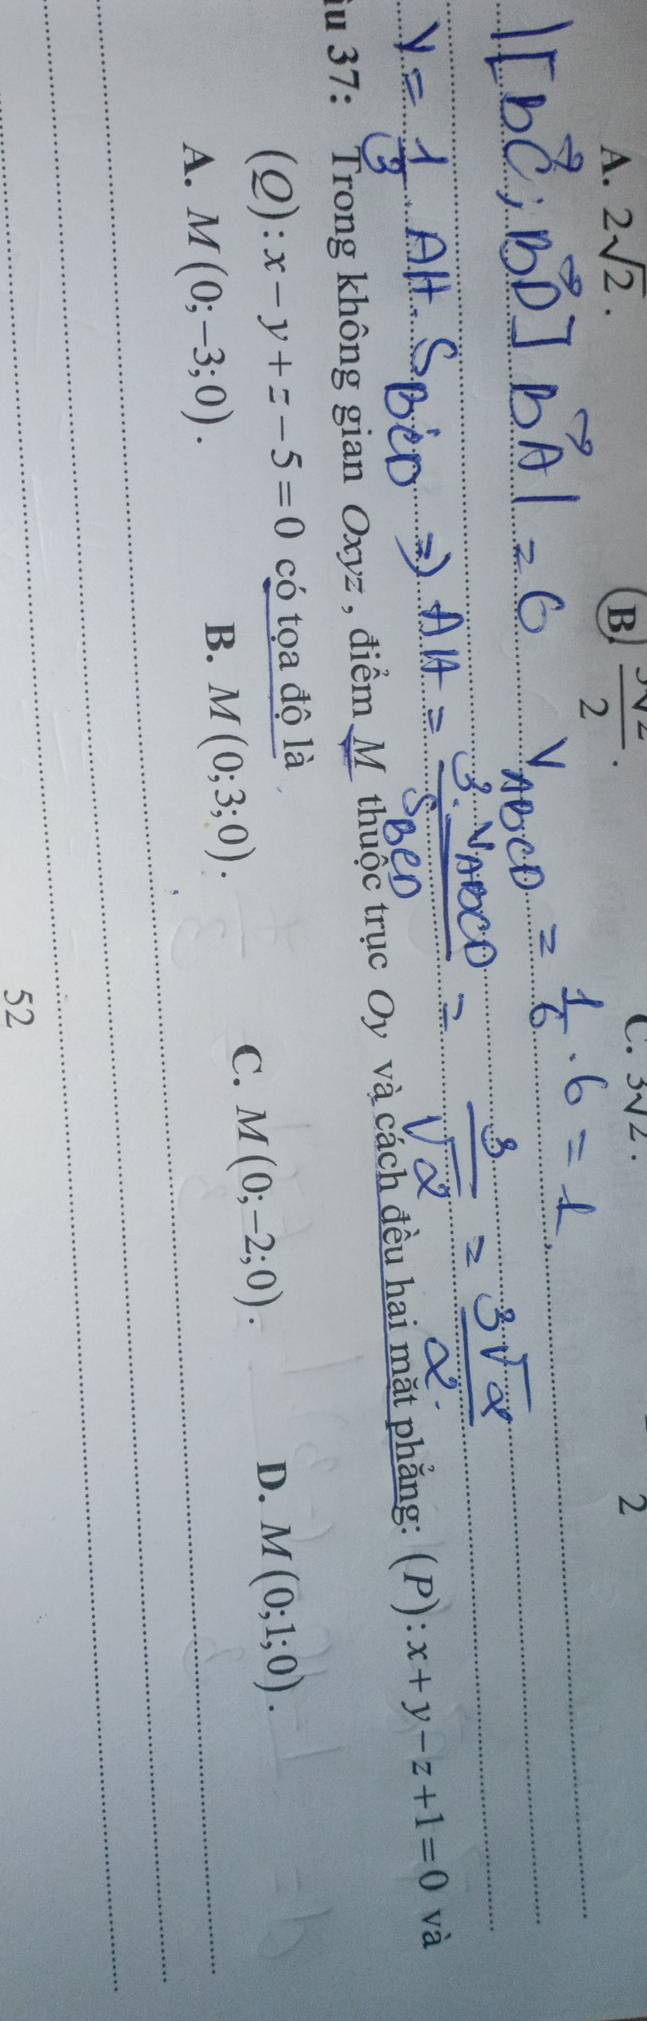 A. 2√2. B. 3√2/2. C. 3√2. 2
|[BC→; BD→] BA→| = 6 V_ABCD = 1/6 . 6 = 1.
V = 1/3 . AH . S_BCD ⇒ AH = 3.V_ABCD/S_BCD = 3/√2 = 3√2/2.
u 37: Trong không gian Oxyz, điểm M thuộc trục Oy và cách đều hai mặt phẳng: (P): x + y − z + 1 = 0 và
(Q): x − y + z − 5 = 0 có tọa độ là
A. M(0;−3;0). B. M(0;3;0). C. M(0;−2;0). D. M(0;1;0).
52